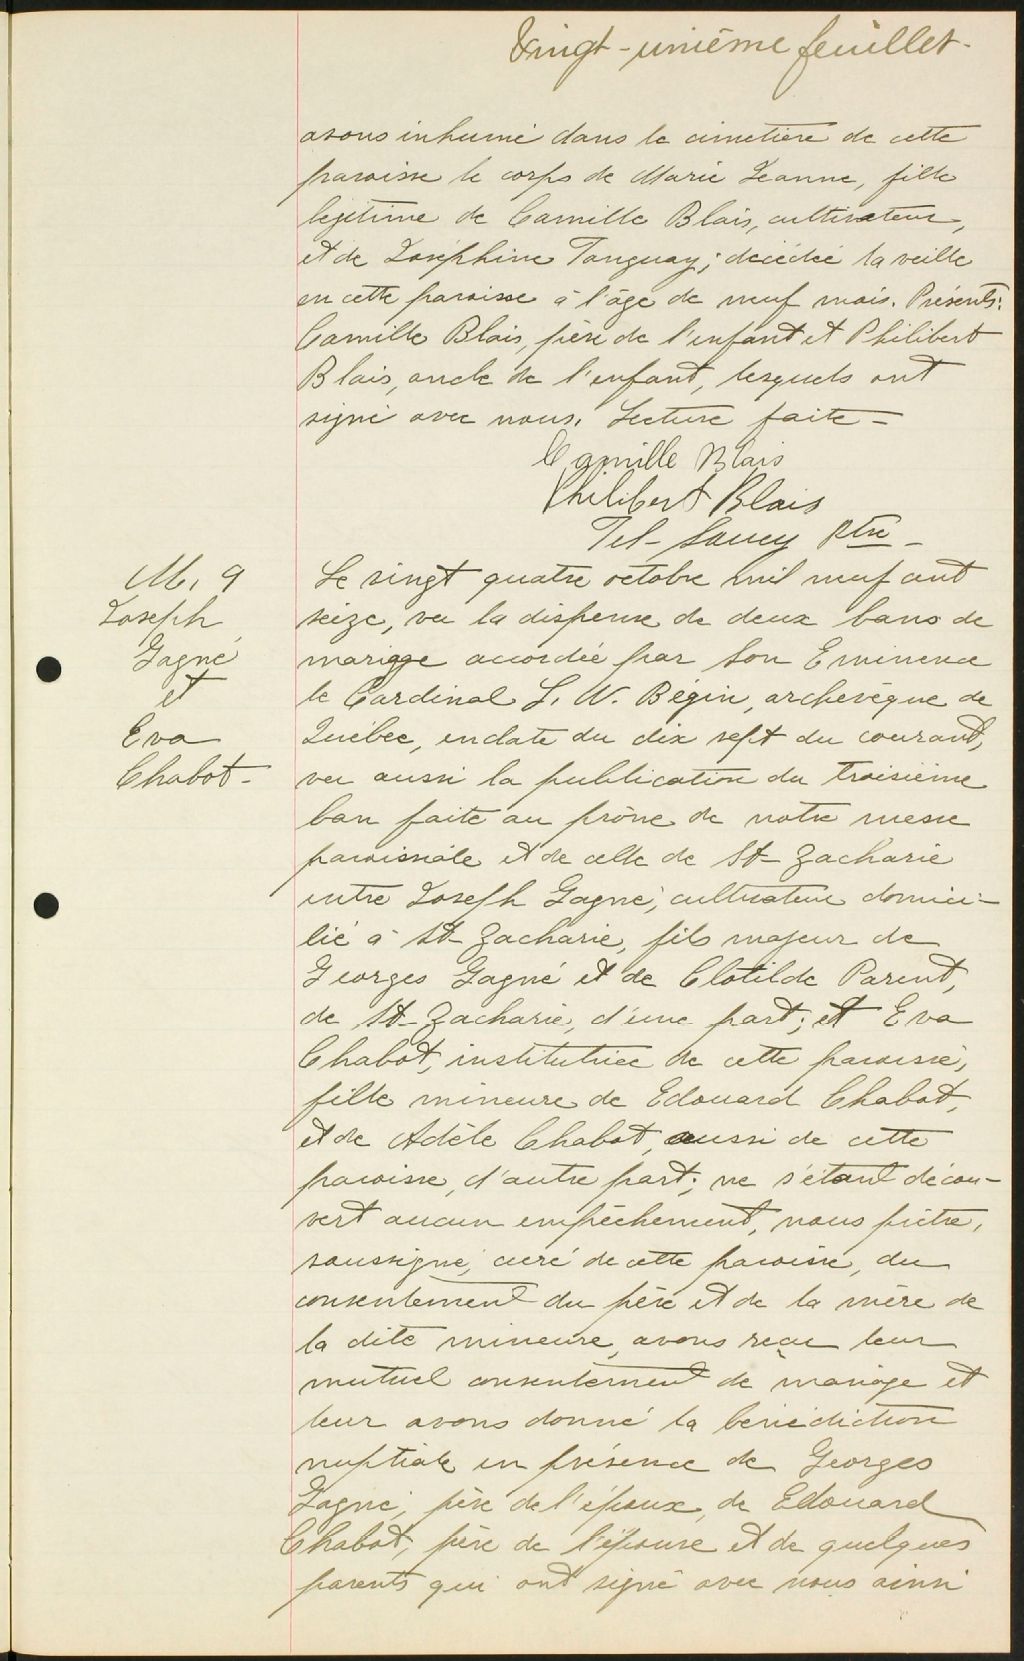 Vingt-unième feuillet-
avons inhumé dans le cimetière de cette
paroisse le corps de Marie Jeanne, fille
legitime de Camille Blais, cultivateur,
et de Joséphine Tanguay; décédée la veille
en cette paroisse à l'âge de neuf mois. Présents:
Camille Blais, père de l'enfant et Philibert
Blais, oncle de l'enfant, lesquels ont
signé avec nous. Lecture faite-
Camille Blais
Philibert Blais
Tel- Soucy Ptre-
M. 9
Joseph
Gagné
et
Eva
Chabot-
Le vingt quatre octobre mil neuf cent
seize, vu la dispense de deux bans de
mariage accordée par Son Eminence
le Cardinal L. N. Bégin, archevêque de
Québec, en date du dix sept du courant,
vu aussi la publication du troisième
ban faite au prône de notre messe
paroissiale et de celle de St-Zacharie
entre Joseph Gagné, cultivateur domici-
lié à St-Zacharie, fils majeur de
Georges Gagné et de Clotilde Parent,
de St-Zacharie, d'une part; et Eva
Chabot, institutrice de cette paroisse,
fille mineure de Edouard Chabot,
et de Adèle Chabot, aussi de cette
paroisse, d'autre part; ne s'étant décou-
vert aucun empêchement, nous prêtre,
soussigné, curé de cette paroisse, du
consentement du père et de la mère de
la dite mineure, avons reçu leur
mutuel consentement de mariage et
leur avons donné la bénédiction
nuptiale en présence de Georges
Gagné, père de l'époux, de Edouard
Chabot, père de l'épouse et de quelques
parents qui ont signé avec nous ainsi